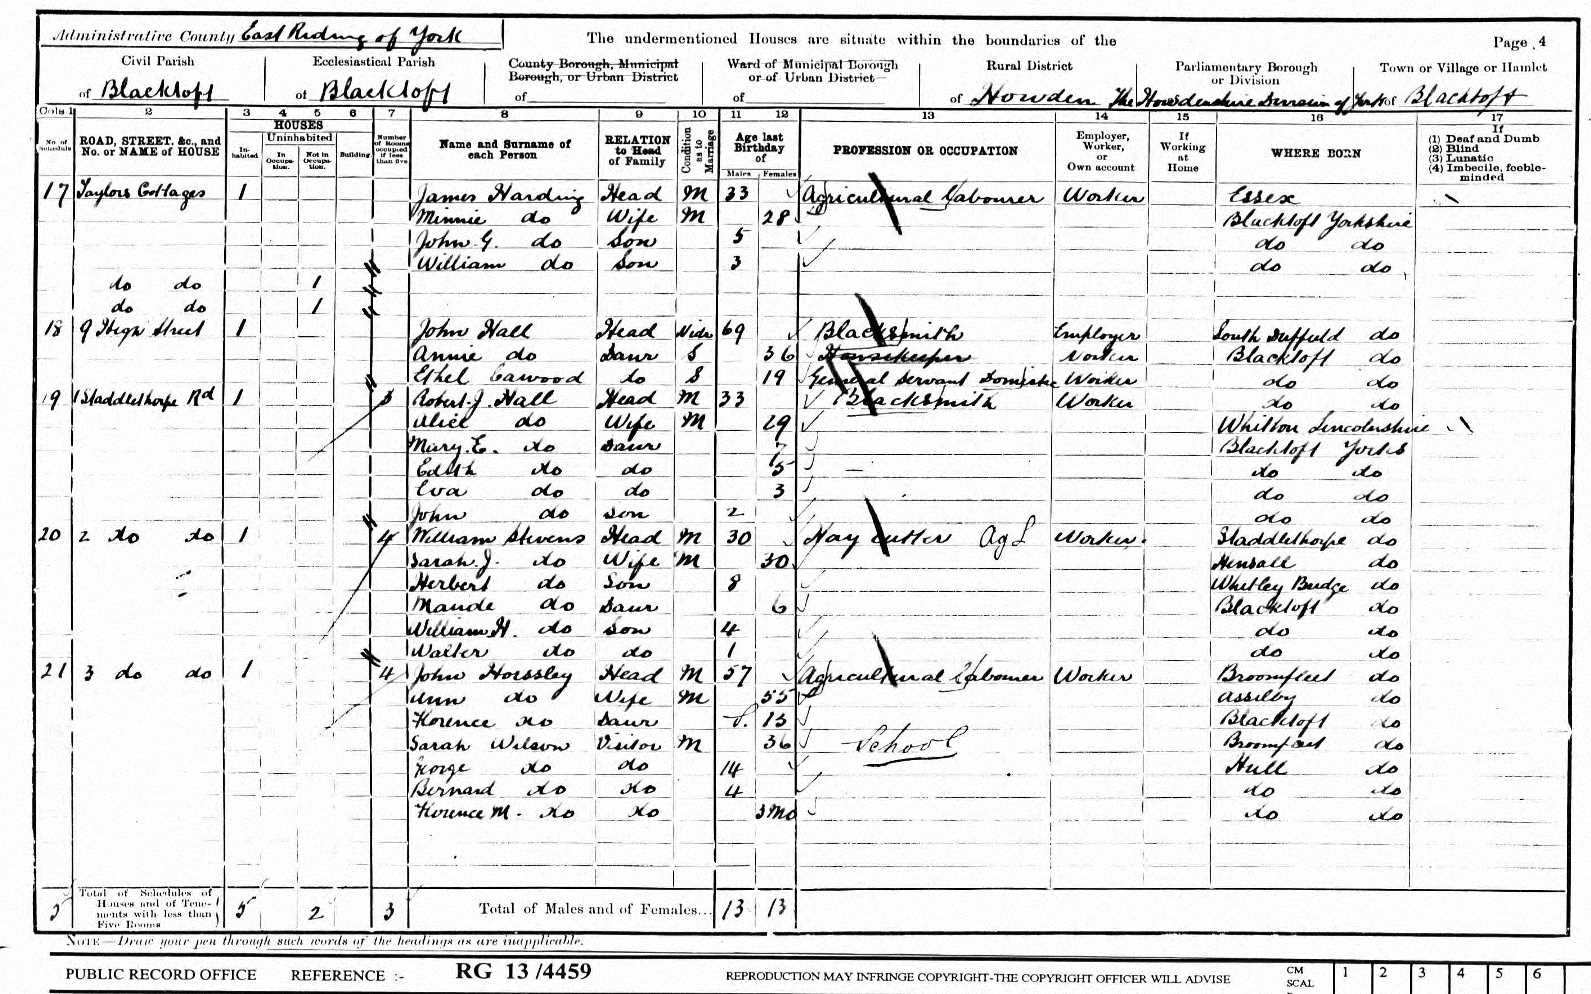 Administrative County East Riding of York
The undermentioned Houses are situate within the boundaries of the
Page 4
Civil Parish of Blacktoft
Ecclesiastical Parish of Blacktoft
County Borough, Municipal Borough, or Urban District of
Ward of Municipal Borough or of Urban District of
Rural District of Howden
Parliamentary Borough or Division The Howdenshire Division of Yorks
Town or Village or Hamlet of Blacktoft
Cols 1 2 3 4 5 6 7 8 9 10 11 12 13 14 15 16 17
No. of Schedule
ROAD, STREET, &c., and No. or NAME of HOUSE
HOUSES
Inhabited
Uninhabited
In Occupation.
Not in Occupation.
Building
Number of Rooms occupied if less than five
Name and Surname of each Person
RELATION to Head of Family
Condition as to Marriage
Age last Birthday of
Males Females
PROFESSION OR OCCUPATION
Employer, Worker, or Own account
If Working at Home
WHERE BORN
If
(1) Deaf and Dumb
(2) Blind
(3) Lunatic
(4) Imbecile, feeble-minded
17 Taylors Cottages 1 James Harding Head M 33 Agricultural Labourer Worker Essex
Minnie do Wife M 28 Blacktoft Yorkshire
John G. do Son 5 do do
William do Son 3 do do
do do 1
do do 1
18 9 High Street 1 John Hall Head Widr 69 Blacksmith Employer South Duffield do
Annie do Daur S 36 Housekeeper Worker Blacktoft do
Ethel Cawood do S 19 General Servant Domestic Worker do do
19 1 Staddlethorpe Rd 1 3 Robert J. Hall Head M 33 Blacksmith Worker do do
Alice do Wife M 29 Whitton Lincolnshire
Mary E. do Daur 7 Blacktoft Yorks
Edith do do 5 do do
Eva do do 3 do do
John do Son 2 do do
20 2 do do 1 4 William Stevens Head M 30 Hay Cutter Ag L Worker Staddlethorpe do
Sarah J. do Wife M 30 Hensall do
Herbert do Son 8 Whitley Bridge do
Maude do Daur 6 Blacktoft do
William H. do Son 4 do do
Walter do do 1 do do
21 3 do do 1 4 John Horssley Head M 57 Agricultural Labourer Worker Broomfleet do
Ann do Wife M 55 Asselby do
Florence do Daur S. 13 Blacktoft do
Sarah Wilson Visitor M 36 School Broomfleet do
George do do 14 Hull do
Bernard do do 4 do do
Florence M. do do 3 Mo do do
5 Total of Schedules of Houses and of Tenements with less than Five Rooms 5 2 3 Total of Males and of Females... 13 13
NOTE—Draw your pen through such words of the headings as are inapplicable.
PUBLIC RECORD OFFICE REFERENCE :- RG 13 /4459 REPRODUCTION MAY INFRINGE COPYRIGHT-THE COPYRIGHT OFFICER WILL ADVISE
CM SCAL 1 2 3 4 5 6